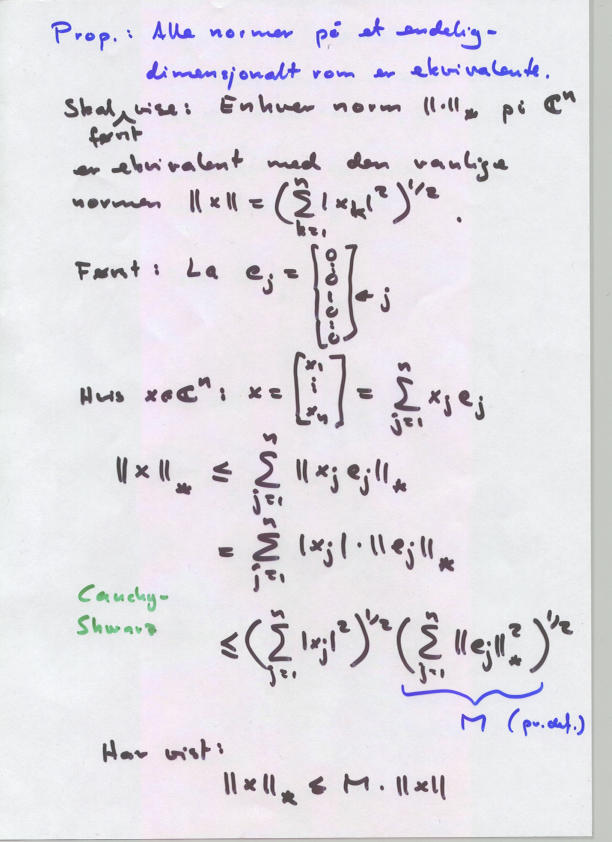 Prop.: Alle normer på et endelig-
dimensjonalt rom er ekvivalente.
Skal først vise: Enhver norm ‖·‖_* på ℂ^n
er ekvivalent med den vanlige
normen ‖x‖ = (∑_{k=1}^{n} |x_k|^2)^{1/2}.
Først: La e_j = [0 ⋮ 0 1 0 ⋮ 0] ← j
Hvis x∈ℂ^n: x = [x_1 ⋮ x_n] = ∑_{j=1}^{n} x_j e_j
‖x‖_* ≤ ∑_{j=1}^{n} ‖x_j e_j‖_*
= ∑_{j=1}^{n} |x_j| · ‖e_j‖_*
Cauchy-
Shwarz
≤ (∑_{j=1}^{n} |x_j|^2)^{1/2} (∑_{j=1}^{n} ‖e_j‖_*^2)^{1/2}
M (pr.def.)
Har vist:
‖x‖_* ≤ M · ‖x‖